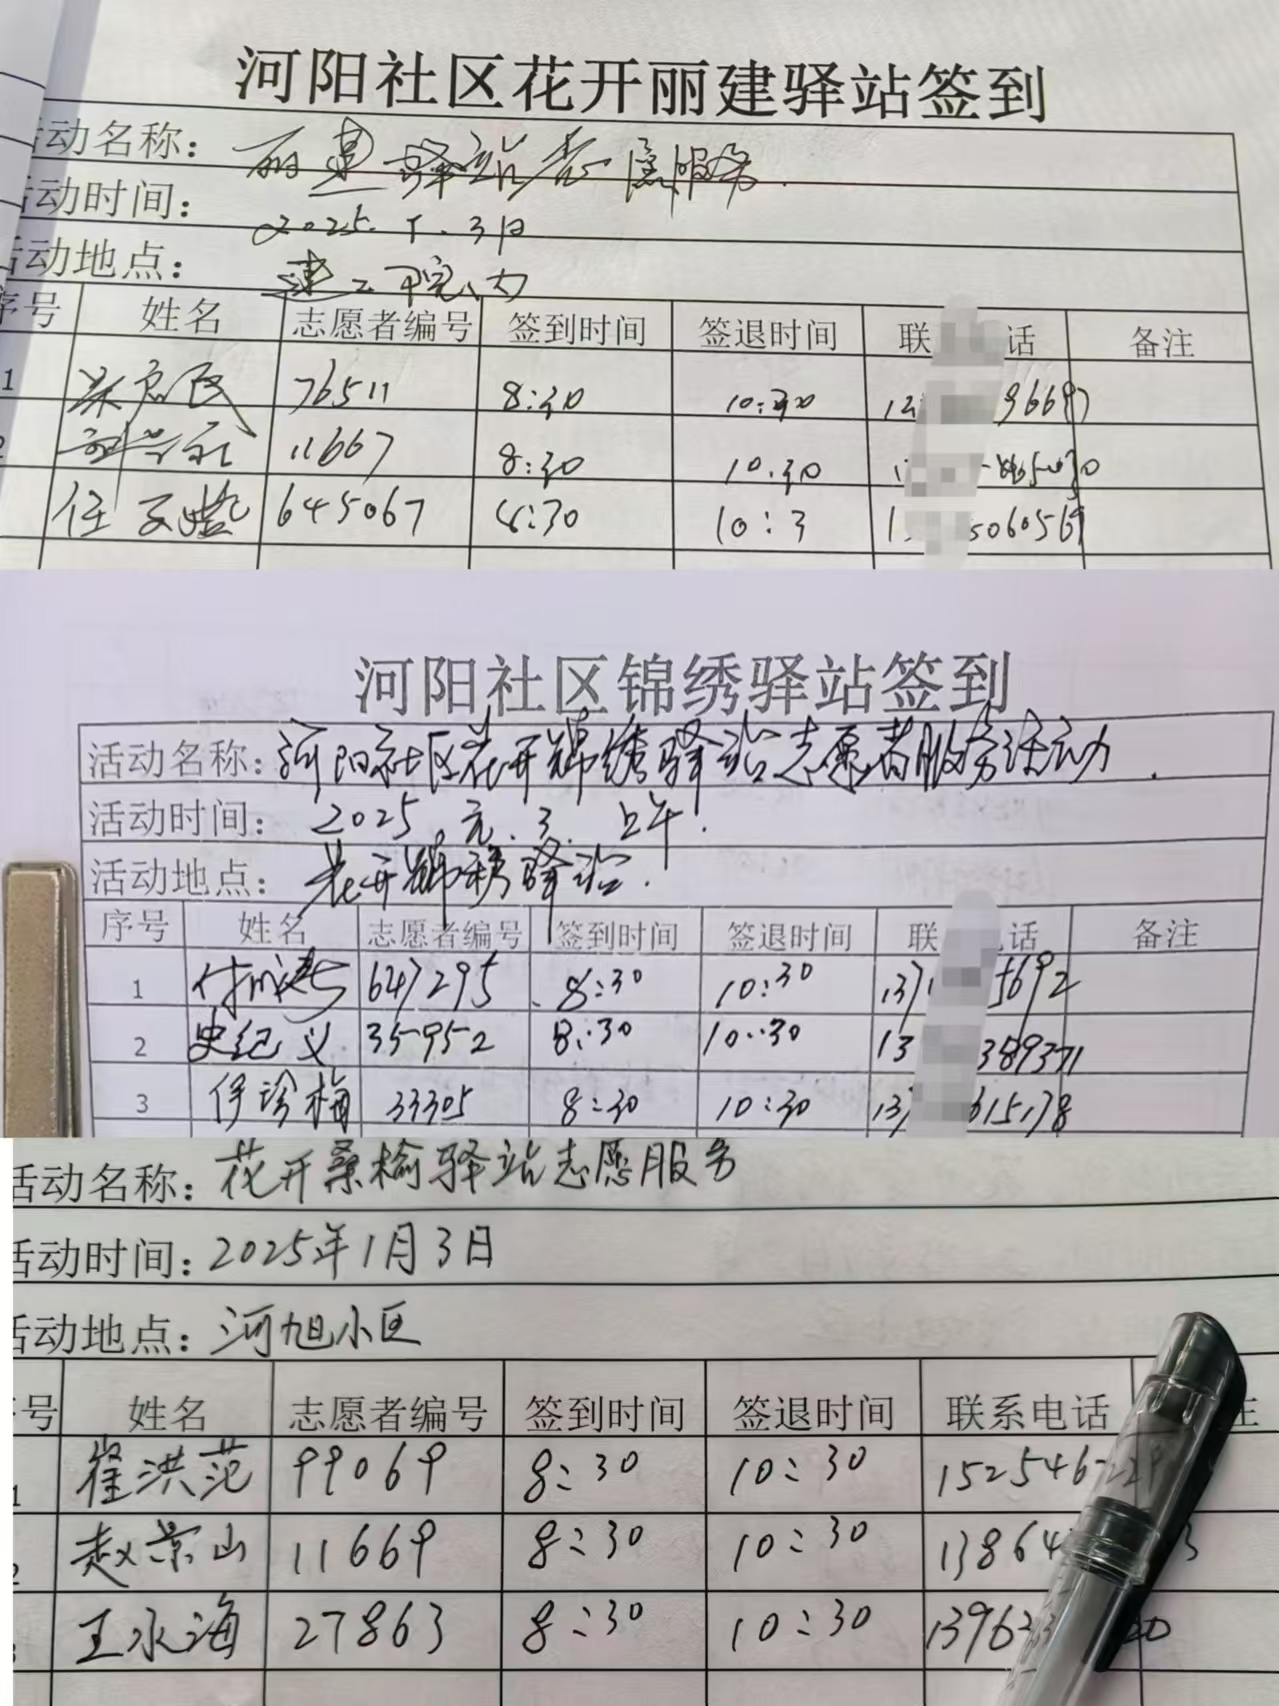 河阳社区花开丽建驿站签到
活动名称: 丽建驿站志愿服务.
活动时间: 2025.1.3日
活动地点: 建工院内
序号 姓名 志愿者编号 签到时间 签退时间 联 话 备注
1 76511 8:30 10:30 96697
2 11667 8:30 10.30
任 645067 8:30 10:3 5060569
河阳社区锦绣驿站签到
活动名称: 河阳社区花开锦绣驿站志愿者服务活动.
活动时间: 2025.元.3. 上午.
活动地点: 花开锦绣驿站.
序号 姓名 志愿者编号 签到时间 签退时间 联 话 备注
1 647295 8:30 10:30 137 5692
2 史纪义 35952 8:30 10:30 13 389371
3 伊珍梅 33305 8:30 10:30 137 615178
活动名称: 花开桑榆驿站志愿服务
活动时间: 2025年1月3日
活动地点: 河旭小区
号 姓名 志愿者编号 签到时间 签退时间 联系电话 注
1 崔洪范 99069 8:30 10:30 152546
2 赵景山 11669 8:30 10:30 13864 3
王永海 27863 8:30 10:30 13963